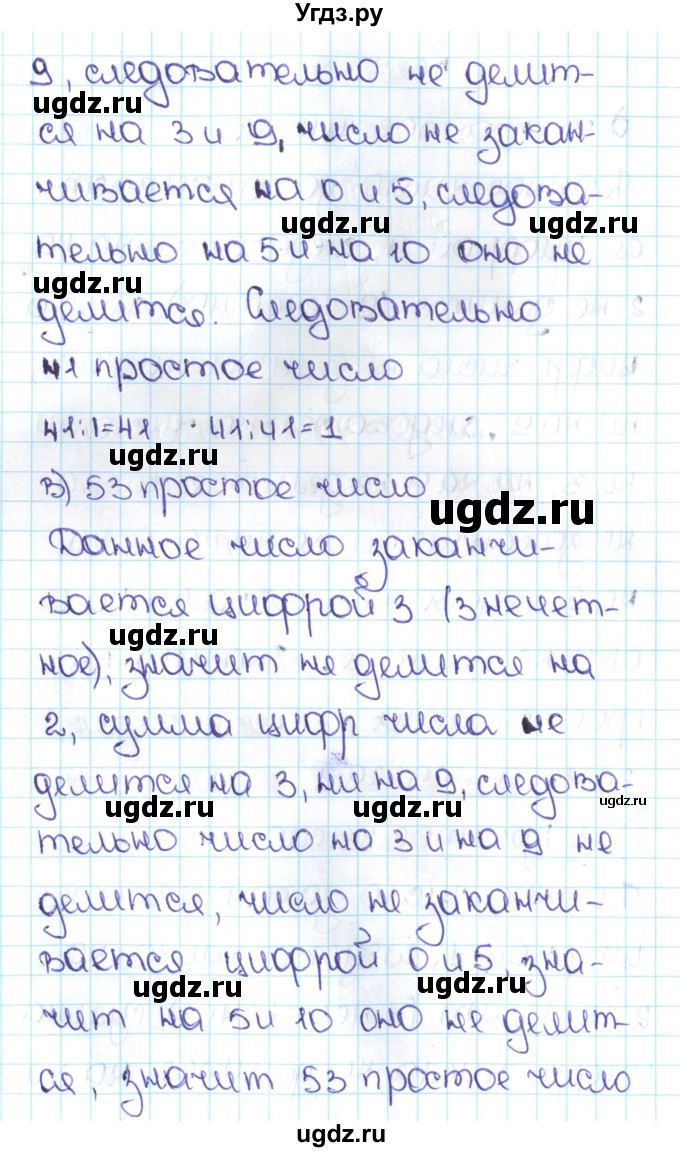 Угдз.ру
9, следовательно не делит-
ugdz.ru
ся на 3 и 9, число не закан-
чивается на 0 и 5, следова-
ugdz.ru ugdz.ru
тельно на 5 и на 10 оно не
ugdz.ru
делится. Следовательно
41 простое число
41:1=41 41:41=1
ugdz.ru
в) 53 простое число
ugdz.ru
Данное число заканчи-
вается цифрой 3 (3 нечет-
ugdz.ru
ное), значит не делится на
2, сумма цифр числа не
делится на 3, ни на 9, следова-
ugdz.ru ugdz.ru ugdz.ru
тельно число на 3 и на 9 не
делится, число не заканчи-
вается цифрой 0 и 5, зна-
ugdz.ru ugdz.ru
чит на 5 и 10 оно не делит-
ся, значит 53 простое число
ugdz.ru